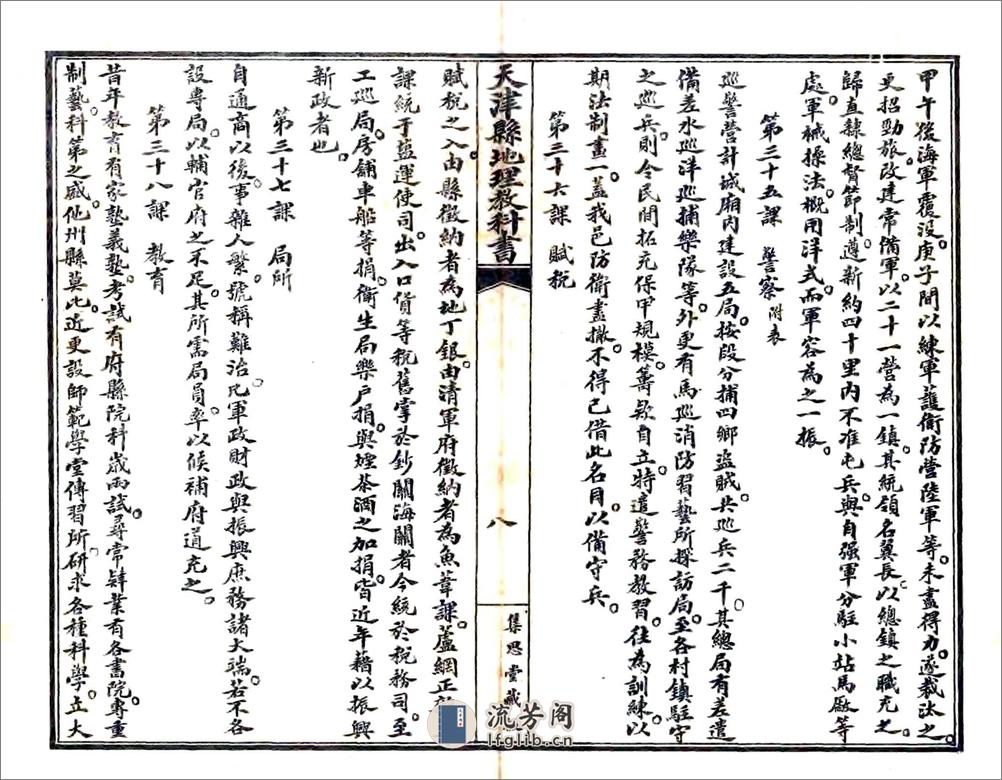 甲午後海軍覆沒。庚子間以練軍護衛防營陸軍等。未盡得力。遂裁汰之。
更招勁旅。改建常備軍。以二十一營為一鎮。其統領名翼長。以總鎮之職充之。
歸直隸總督節制。遵新約四十里內不准屯兵。與自强軍分駐小站馬廠等
處。軍械操法。概用洋式。而軍容為之一振。
第三十五課 警察 附表
巡警營計城廂內建設五局。按段分捕四鄉盜賊。共巡兵二千。其總局有差遣
備差水巡洋巡捕樂隊等。外更有馬巡消防習藝所探訪局。至各村鎮駐守
之巡兵。則令民間拓充保甲規模。籌欵自立。特遣警務教習。往為訓練。以
期法制畫一。蓋我邑防衛盡撤。不得已借此名目。以備守兵。
第三十六課 賦稅
天津縣地理教科書
八
集思堂藏
賦稅之入。由縣徵納者為地丁銀。由清軍府徵納者為魚葦課。蘆綱正
課統于鹽運使司。出入口貨等稅。舊掌於鈔關海關者。今統於稅務司。至
工巡局。房舖車船等捐。衛生局樂戶捐。與煙茶酒之加捐。皆近年藉以振興
新政者也。
第三十七課 局所
自通商以後。事雜人繁。號稱難治。凡軍政財政與振興庶務諸大端。若不各
設專局。以輔官府之不足。其所需局員。率以候補府道充之。
第三十八課 教育
昔年教育有家塾義塾。考試有府縣院科歲兩試。尋常肄業有各書院。專重
制藝。科第之盛。他州縣莫比。近更設師範學堂傳習所。研求各種科學。立大
流芳阁
lfglib.cn